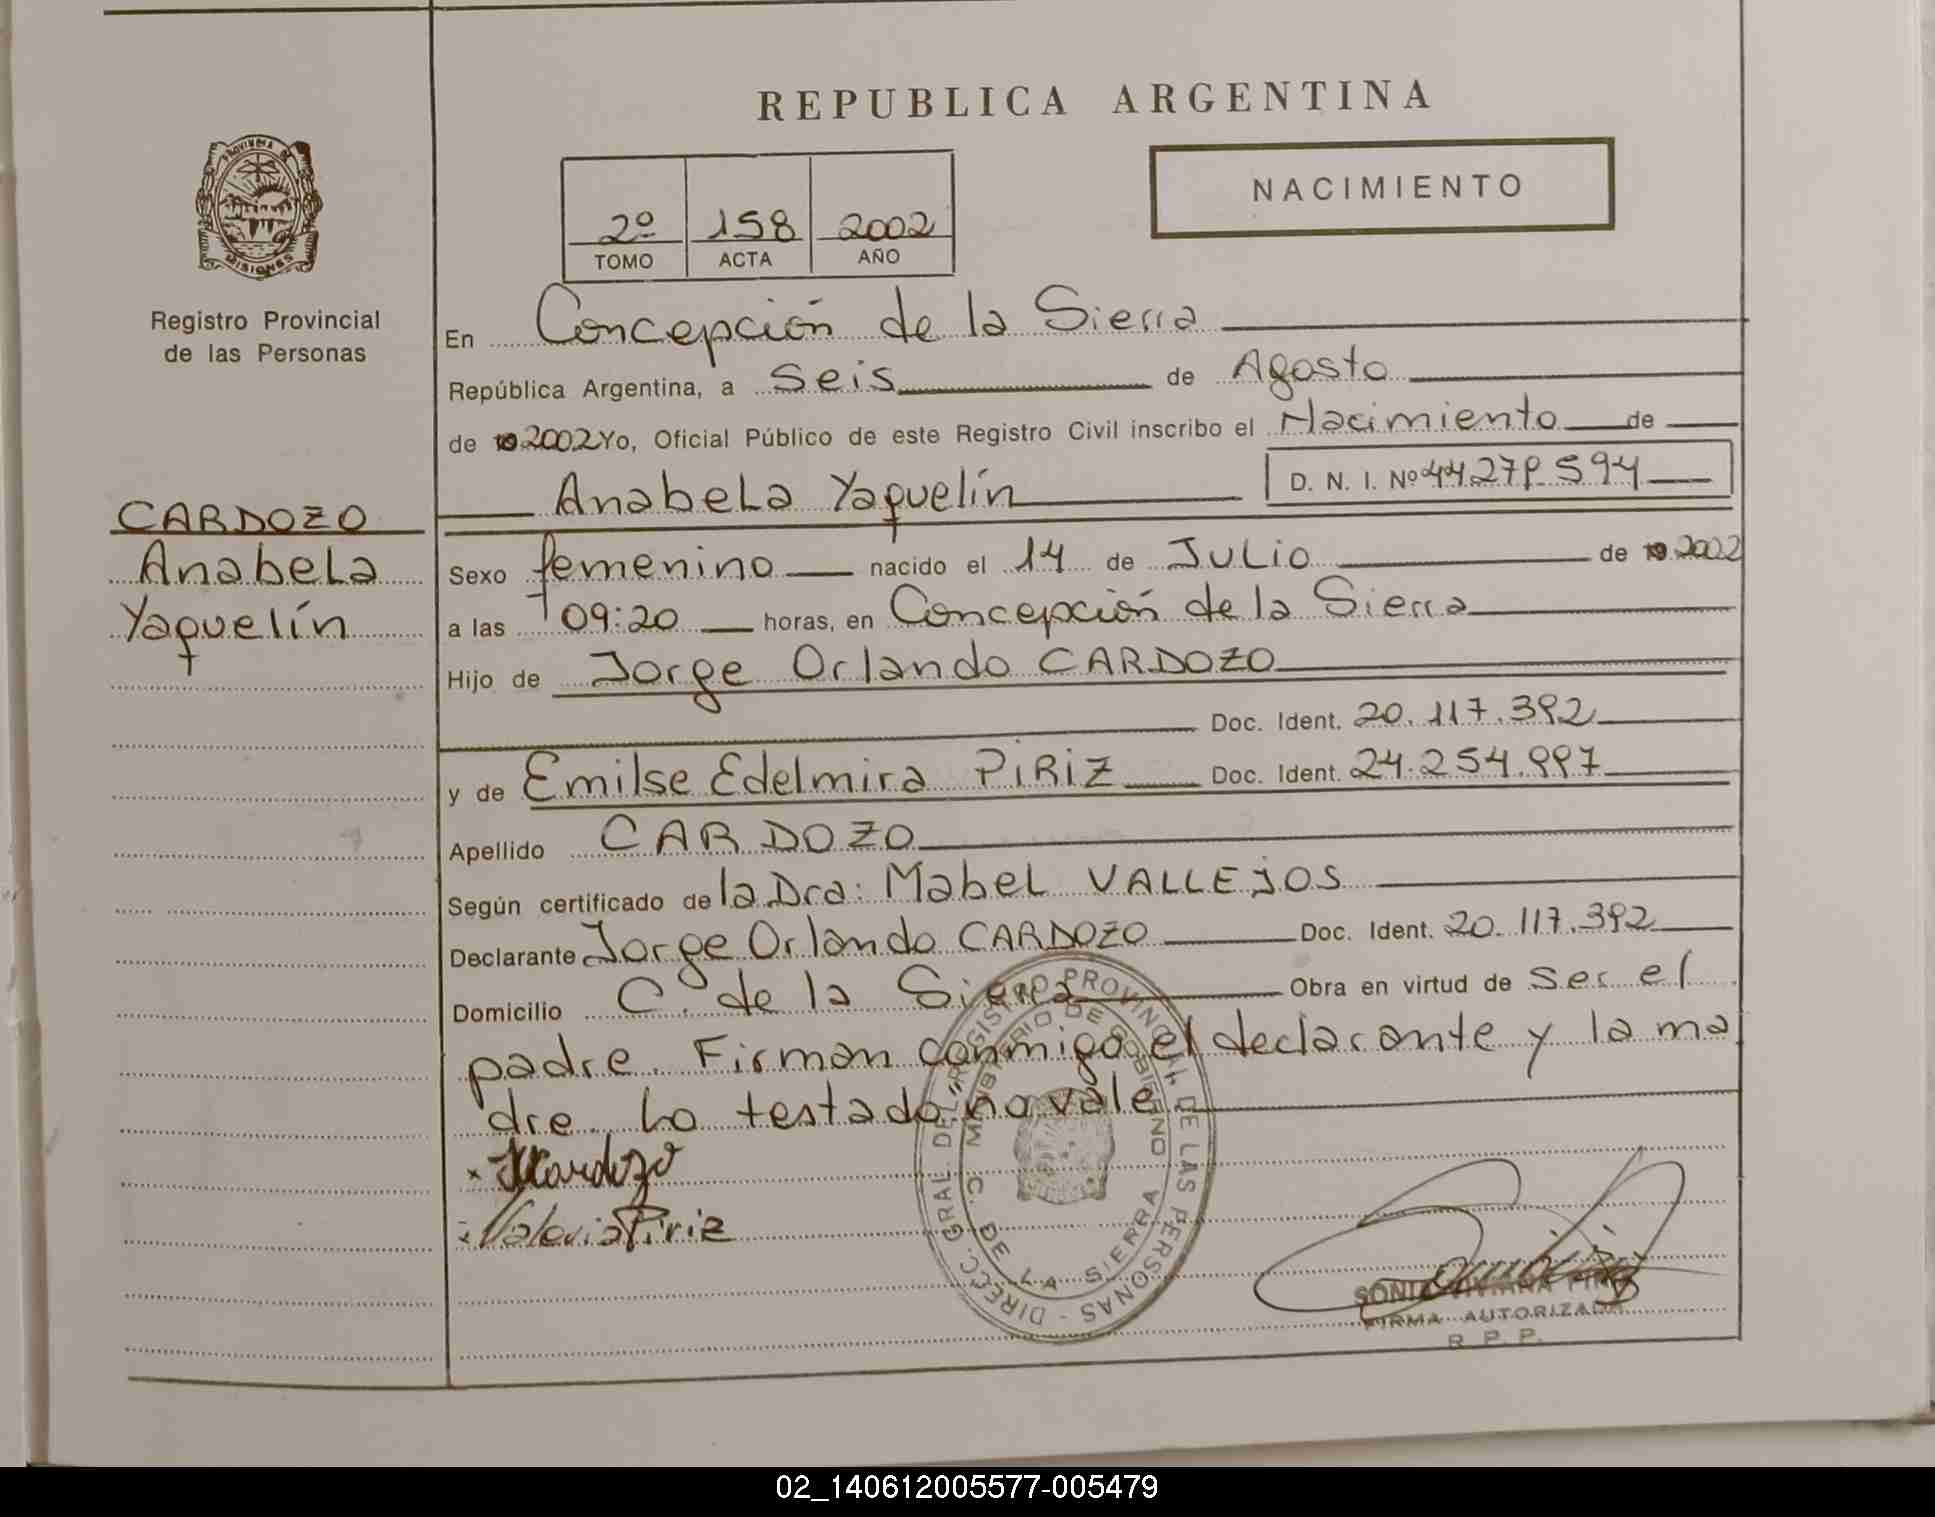 REPUBLICA ARGENTINA
NACIMIENTO
2º 158 2002
TOMO ACTA AÑO
PROVINCIA DE MISIONES
Registro Provincial
de las Personas
CARDOZO
Anabela
Yaquelín
En Concepción de la Sierra
República Argentina, a Seis de Agosto
de 2002 Yo, Oficial Público de este Registro Civil inscribo el Nacimiento de
Anabela Yaquelín D. N. I. Nº 44.279.594
Sexo femenino nacido el 14 de Julio de 2002
a las 09:20 horas, en Concepción de la Sierra
Hijo de Jorge Orlando CARDOZO
Doc. Ident. 20.117.392
y de Emilse Edelmira PiRiZ Doc. Ident. 24.254.997
Apellido CARDOZO
Según certificado de la Dra: Mabel VALLEJOS
Declarante Jorge Orlando CARDOZO Doc. Ident. 20.117.392
Domicilio C. de la Sierra Obra en virtud de ser el
padre. Firman conmigo el declarante y la ma
dre. Lo testado no vale
Cardozo
Valeria Piriz
DIRECC. GRAL DEL REGISTRO PROVINCIAL DE LAS PERSONAS -
MINISTERIO DE GOBIERNO
C. DE LA SIERRA
SONIA VIVIANA
FIRMA AUTORIZADA
R. P. P.
02_140612005577-005479